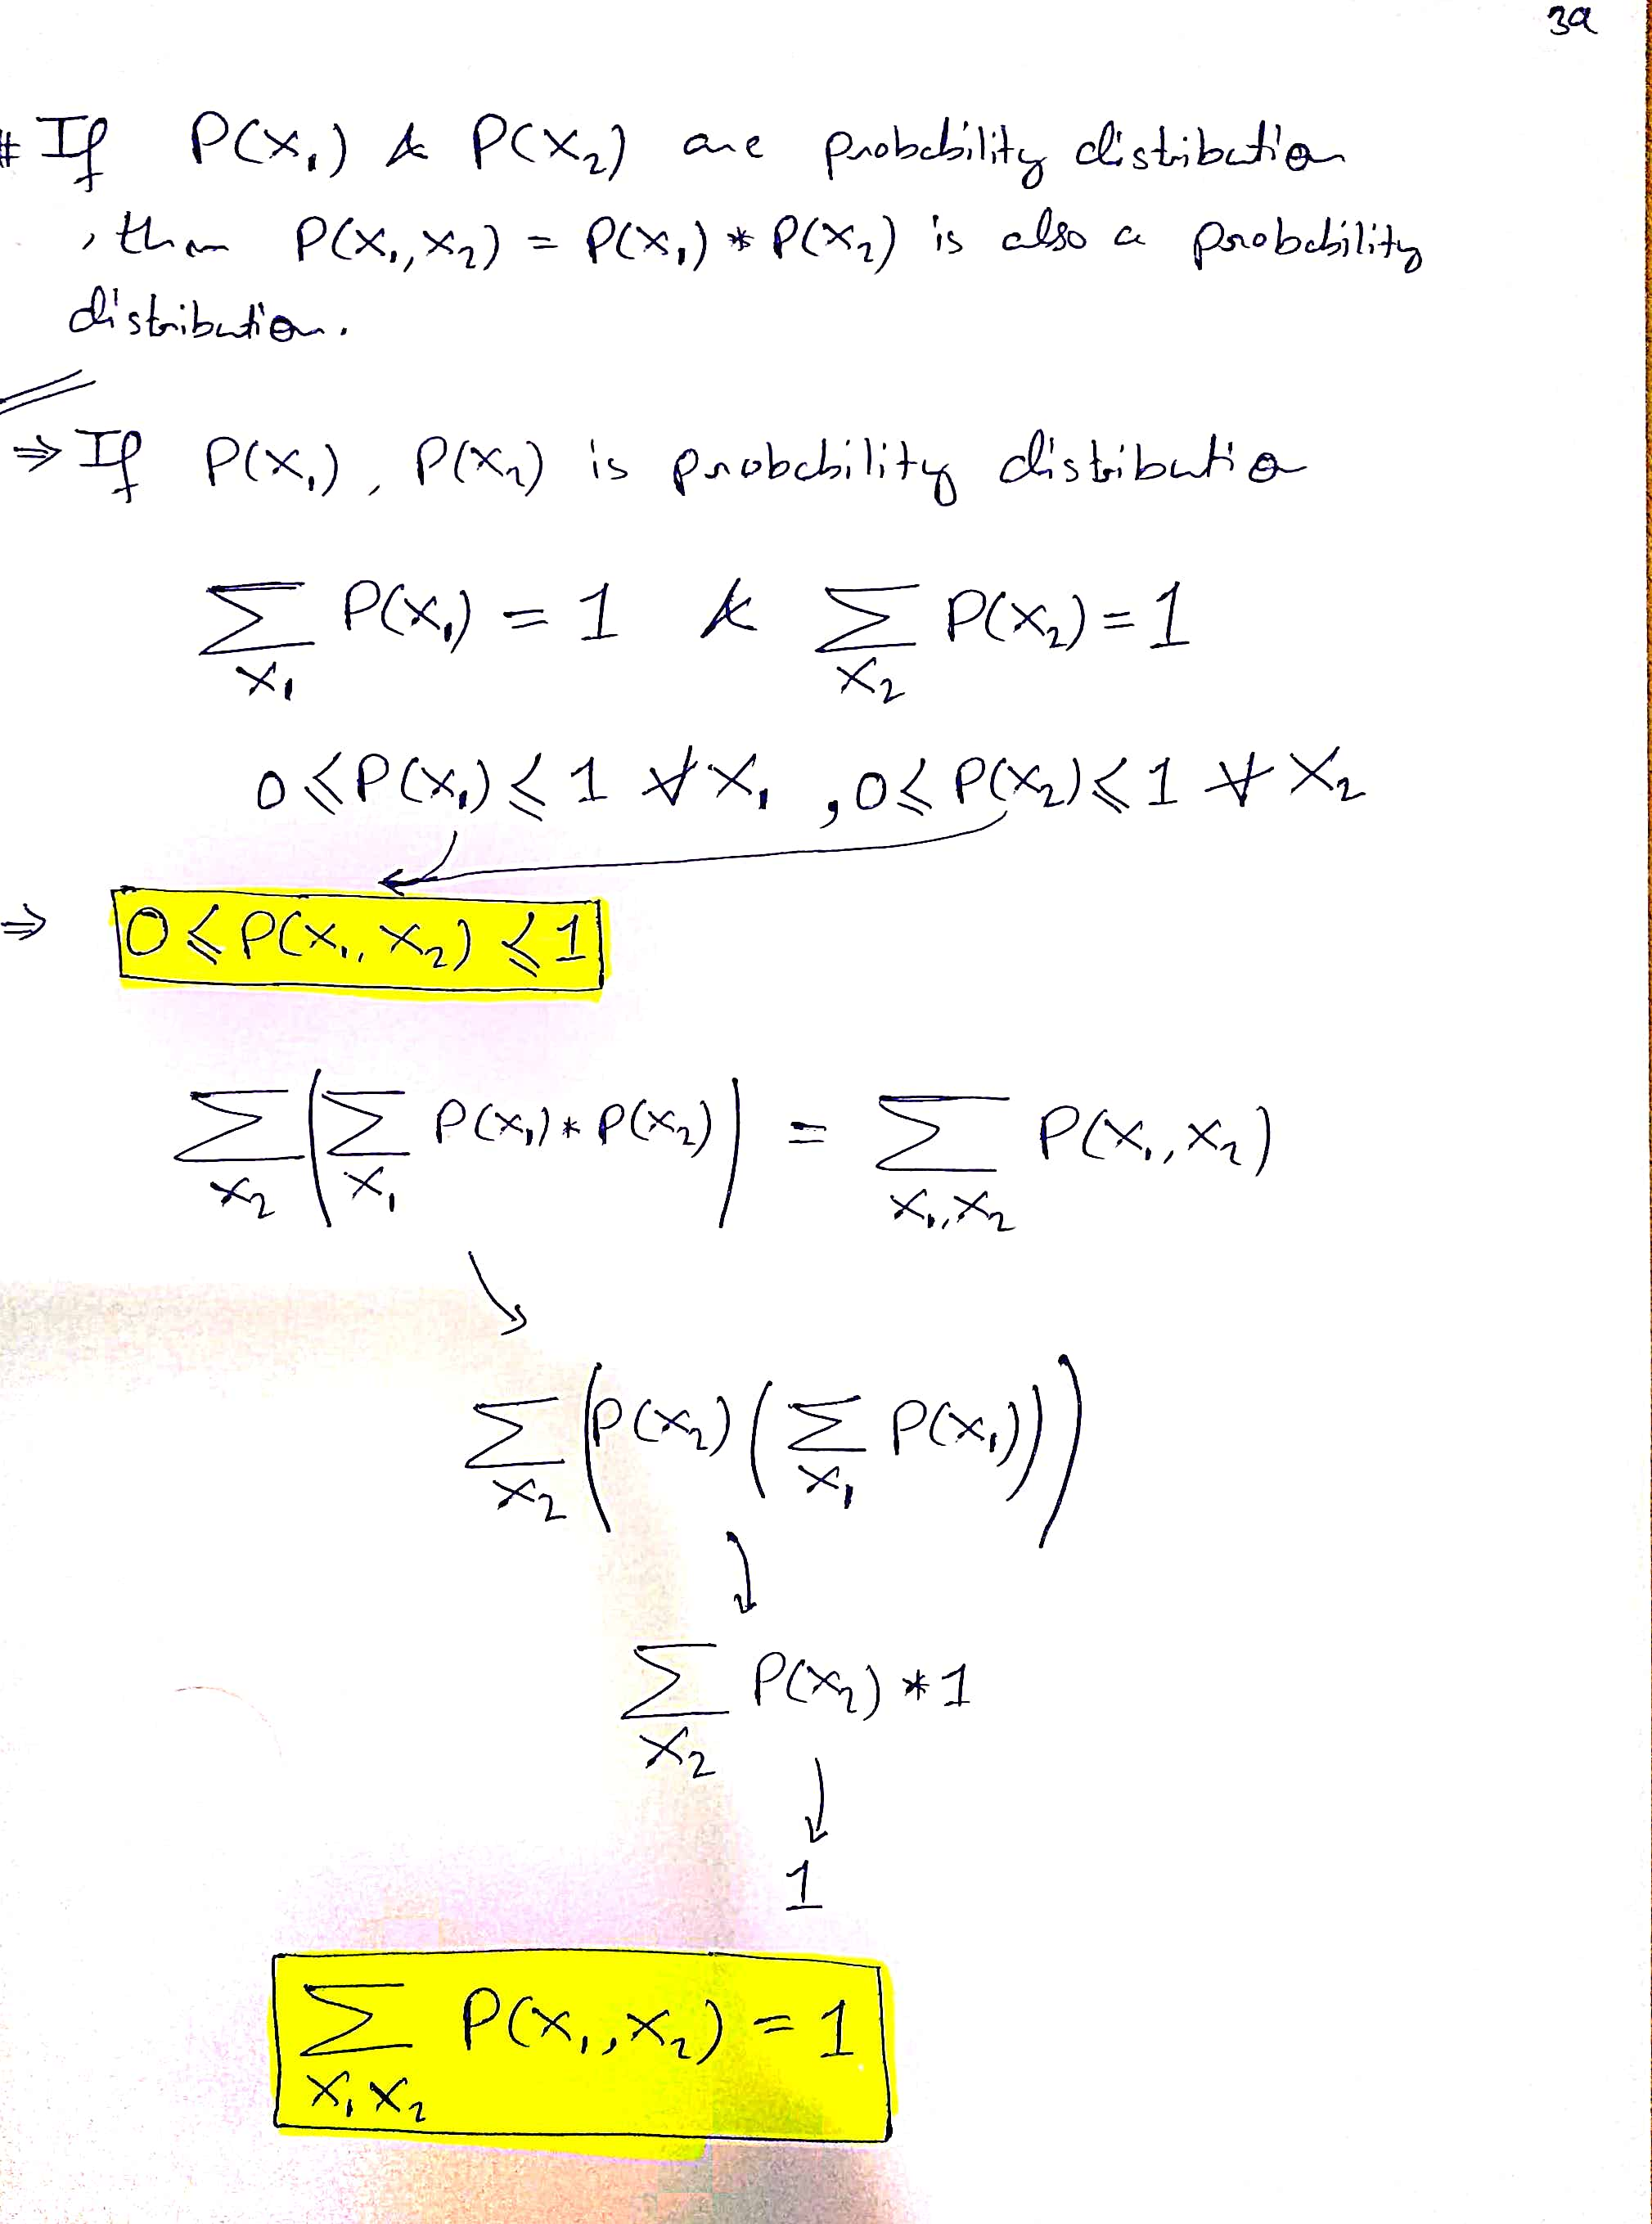 39
# If P(X₁) & P(X₂) are probability distribution
, then P(X₁, X₂) = P(X₁) * P(X₂) is also a probability
distribution.
⇒ If P(X₁), P(X₂) is probability distribution
∑_{X₁} P(X₁) = 1 & ∑_{X₂} P(X₂) = 1
0 ≤ P(X₁) ≤ 1 ∀ X₁ , 0 ≤ P(X₂) ≤ 1 ∀ X₂
⇒ 0 ≤ P(X₁, X₂) ≤ 1
∑_{X₂} ( ∑_{X₁} P(X₁) * P(X₂) ) = ∑_{X₁, X₂} P(X₁, X₂)
∑_{X₂} ( P(X₂) ( ∑_{X₁} P(X₁) ) )
∑_{X₂} P(X₂) * 1
1
∑_{X₁ X₂} P(X₁, X₂) = 1